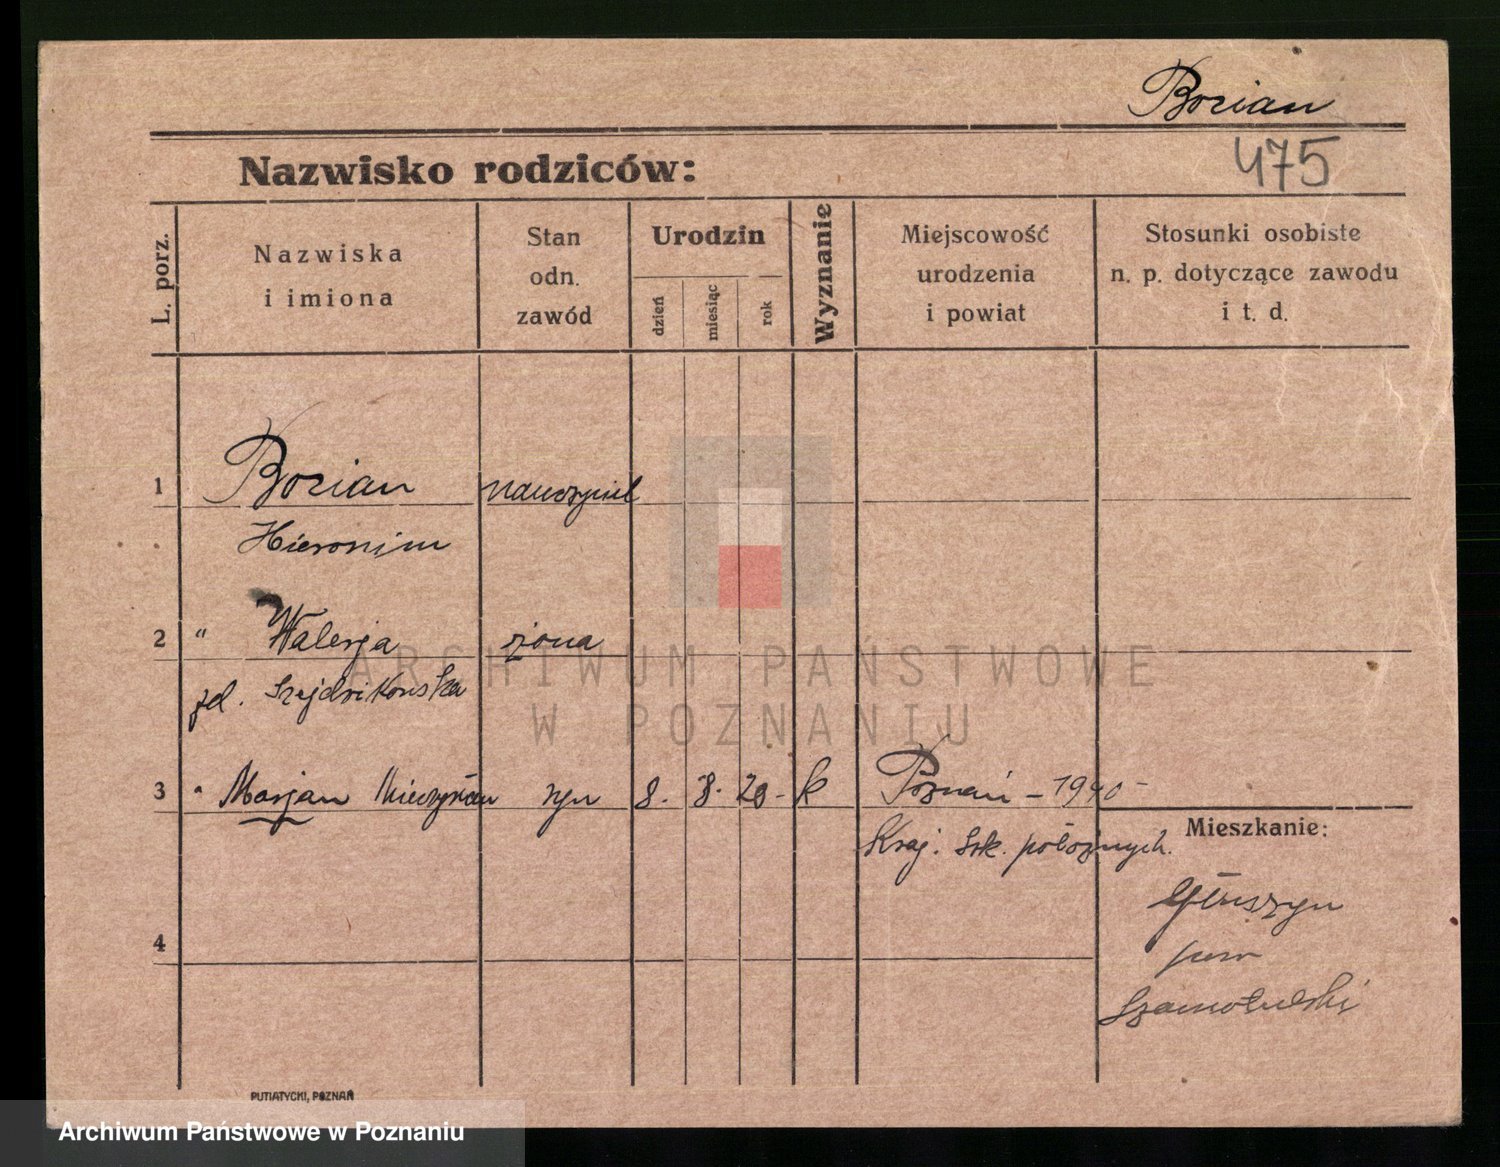 Borian
Nazwisko rodziców:
475
L. porz.
Nazwiska
i imiona
Stan
odn.
zawód
Urodzin
dzień
miesiąc
rok
Wyznanie
Miejscowość
urodzenia
i powiat
Stosunki osobiste
n. p. dotyczące zawodu
i t. d.
1 Borian nauczyciel
Hieronim
2 " Walerja żona
ARCHIWUM PAŃSTWOWE
W POZNANIU
3 " Marjan Mieczysław syn 8. 8. 20 - k Poznań - 1940
Mieszkanie:
Kraj. Szk. położnych.
pow
4
Szamotulski
PUTIATYCKI, POZNAŃ
Archiwum Państwowe w Poznaniu